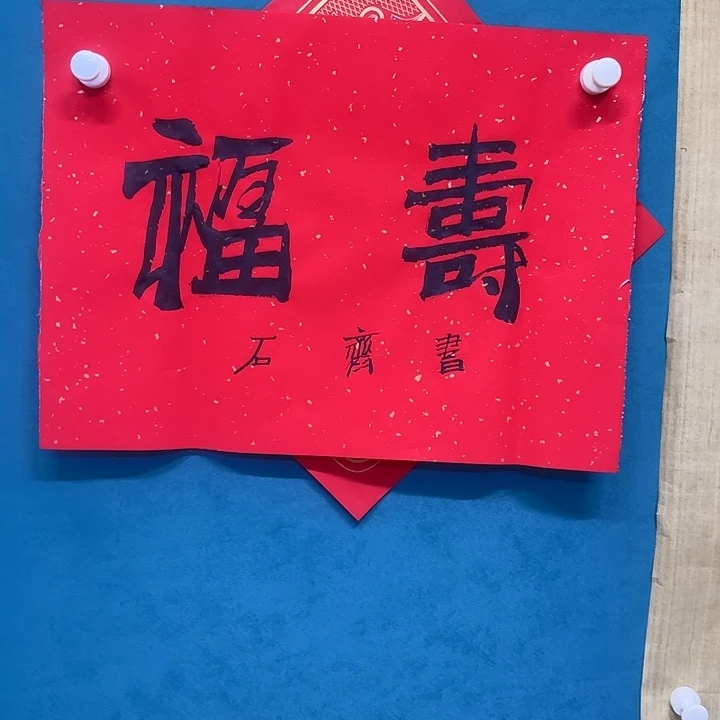 福壽
石齊書